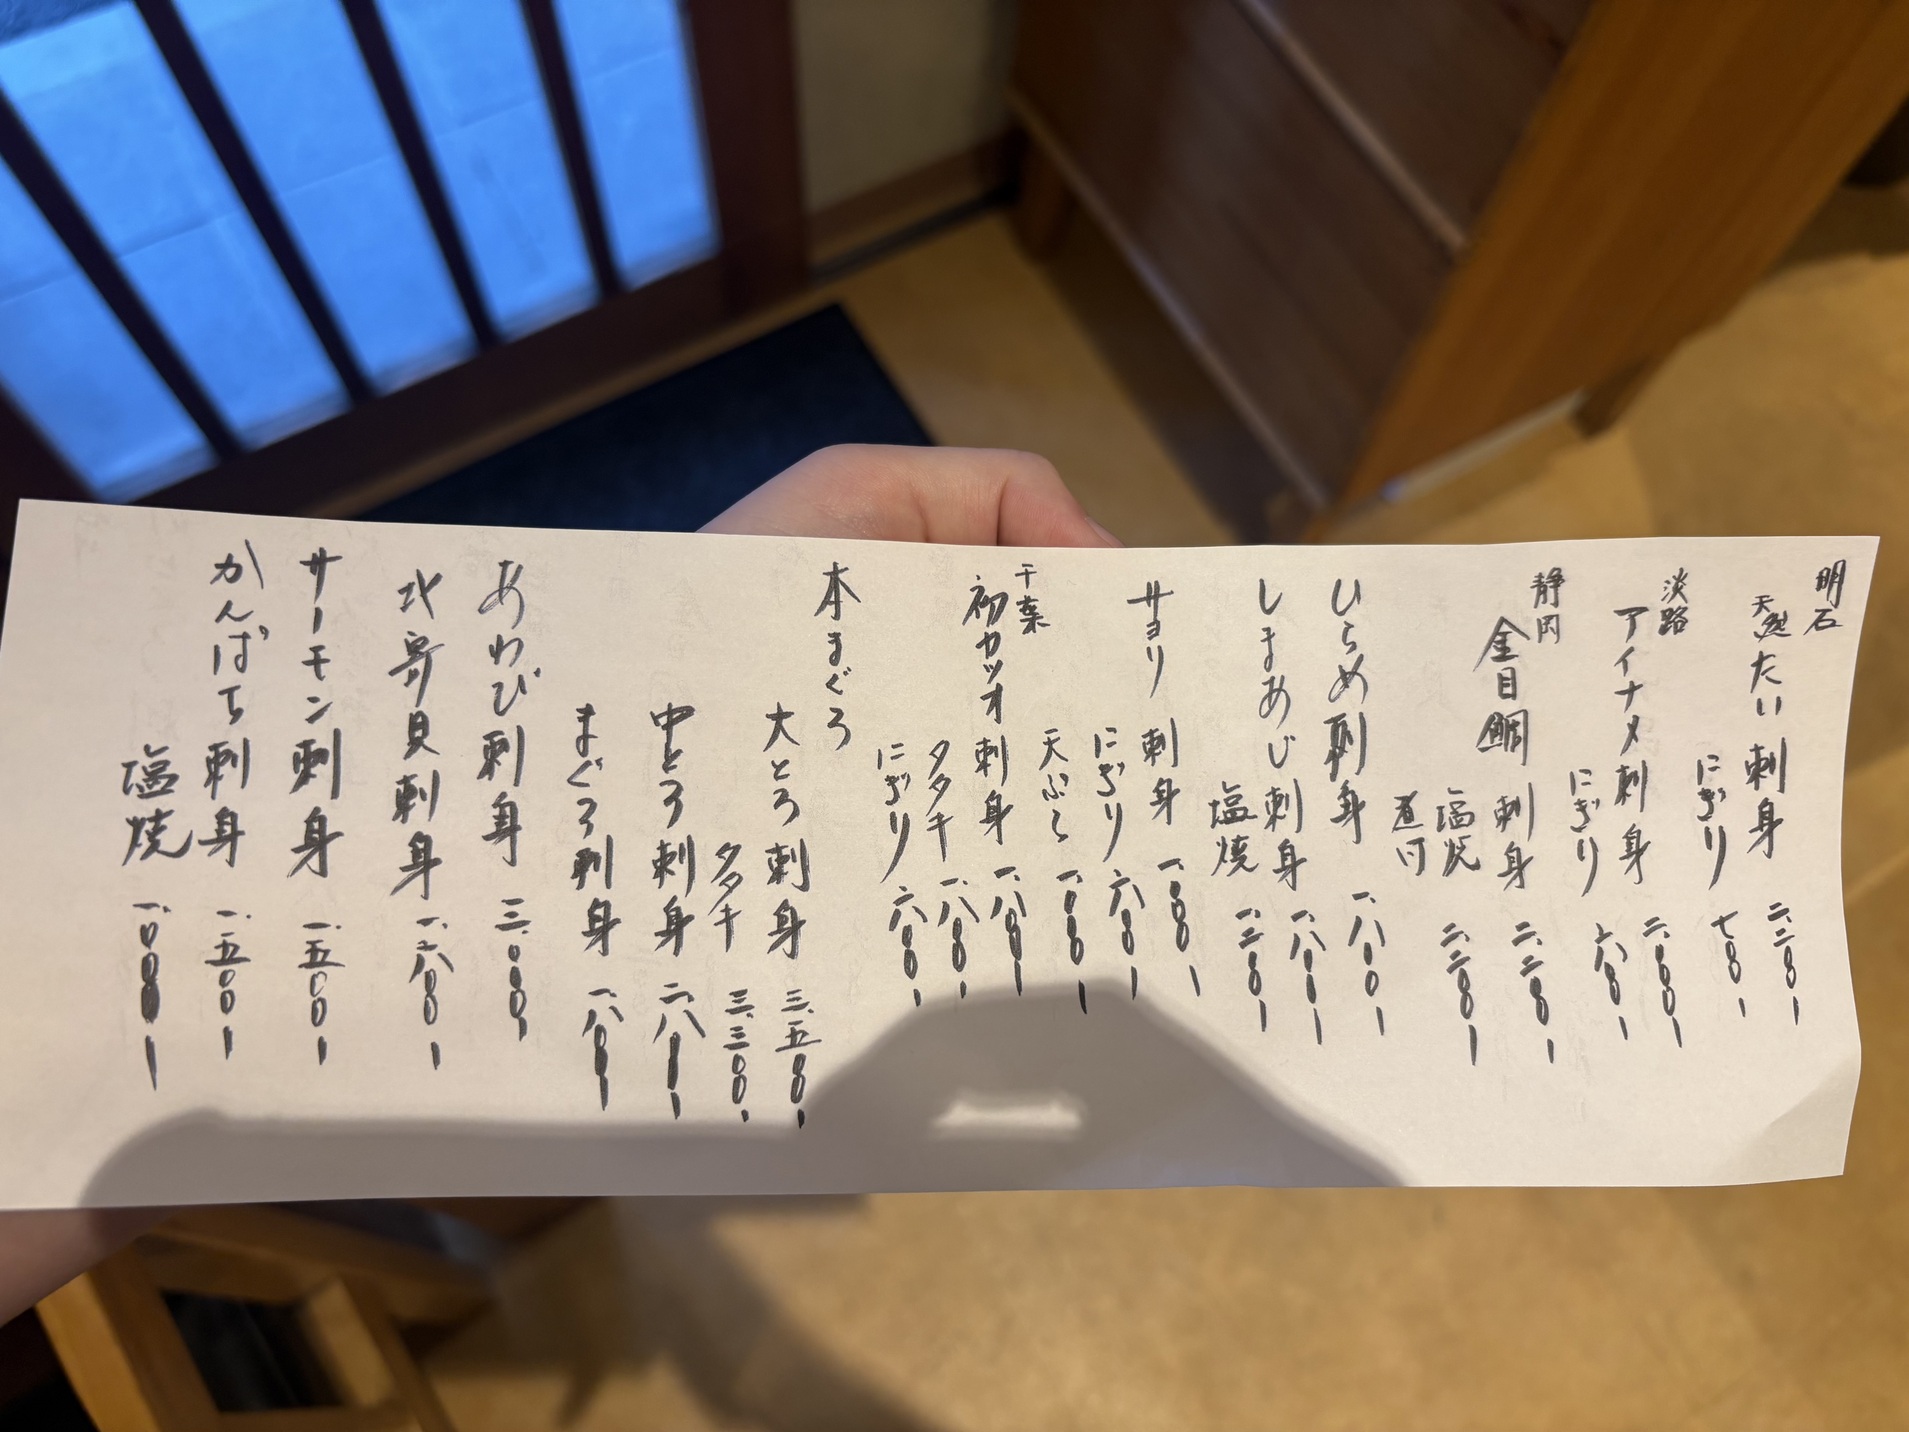 明石
天然たい刺身 二、二〇〇、
にぎり 七〇〇、
淡路
アイナメ刺身 二、〇〇〇、
にぎり 六〇〇、
静岡
金目鯛 刺身 二、二〇〇、
塩焼 二、二〇〇、
煮付
ひらめ刺身 一、八〇〇、
しまあじ刺身 一、八〇〇、
塩焼 一、二〇〇、
サヨリ 刺身 一、〇〇〇、
にぎり 六〇〇、
天ぷら 一、〇〇〇、
千葉
初カツオ 刺身 一、八〇〇、
タタキ 一、八〇〇、
にぎり 六〇〇、
本まぐろ
大とろ刺身 三、五〇〇、
タタキ 三、三〇〇、
中とろ刺身 二、八〇〇、
まぐろ刺身 一、八〇〇、
あわび刺身 三、〇〇〇、
北寄貝刺身 一、八〇〇、
サーモン刺身 一、五〇〇、
かんぱち刺身 一、五〇〇、
塩焼 一、〇〇〇、